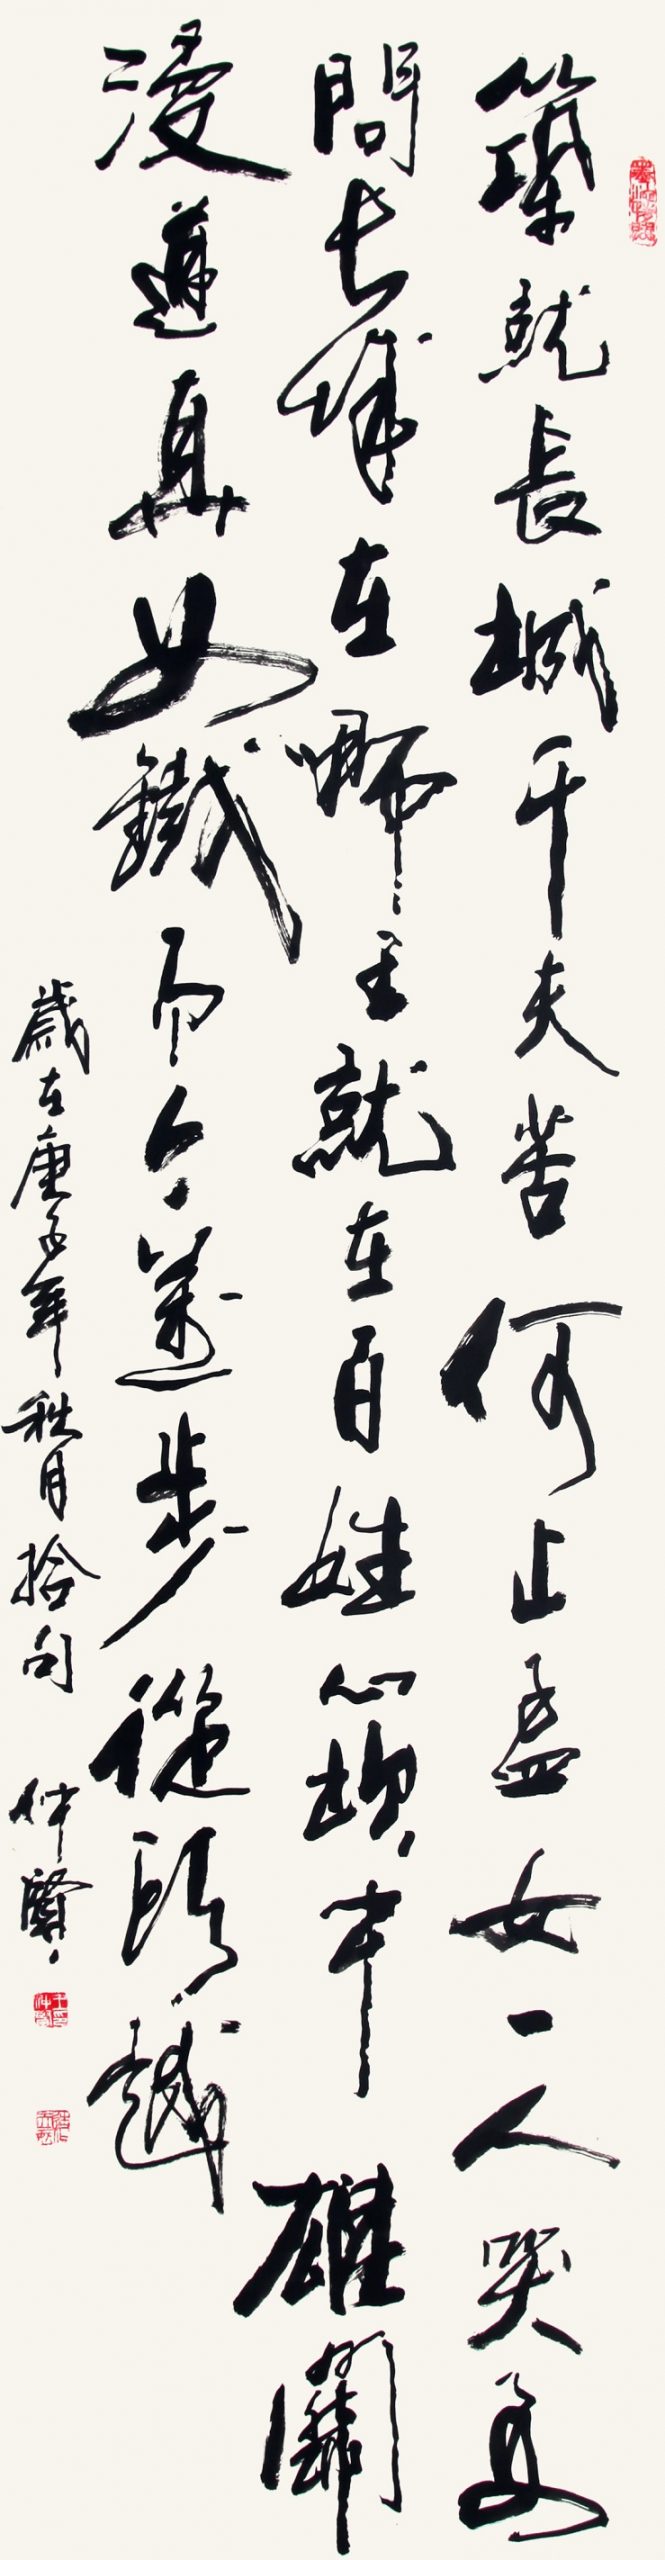 築就長城千夫苦何止孟女一人哭要
問長城在哪里就在百姓心坎中雄關
漫道真如鐵而今邁步從頭越
歲在庚子年秋月拾句 仲賢